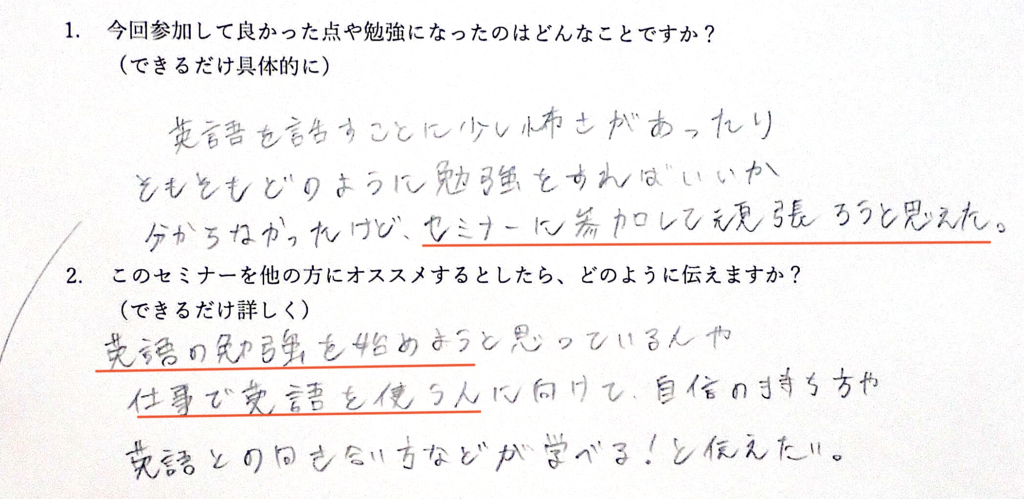 1. 今回参加して良かった点や勉強になったのはどんなことですか?
(できるだけ具体的に)
英語を話すことに少し怖さがあったり
そもそもどのように勉強をすればいいか
分からなかったけど、セミナーに参加して頑張ろうと思えた。
2. このセミナーを他の方にオススメするとしたら、どのように伝えますか?
(できるだけ詳しく)
英語の勉強を始めようと思っている人や
仕事で英語を使う人に向けて、自信の持ち方や
英語との向き合い方などが学べる!と伝えたい。